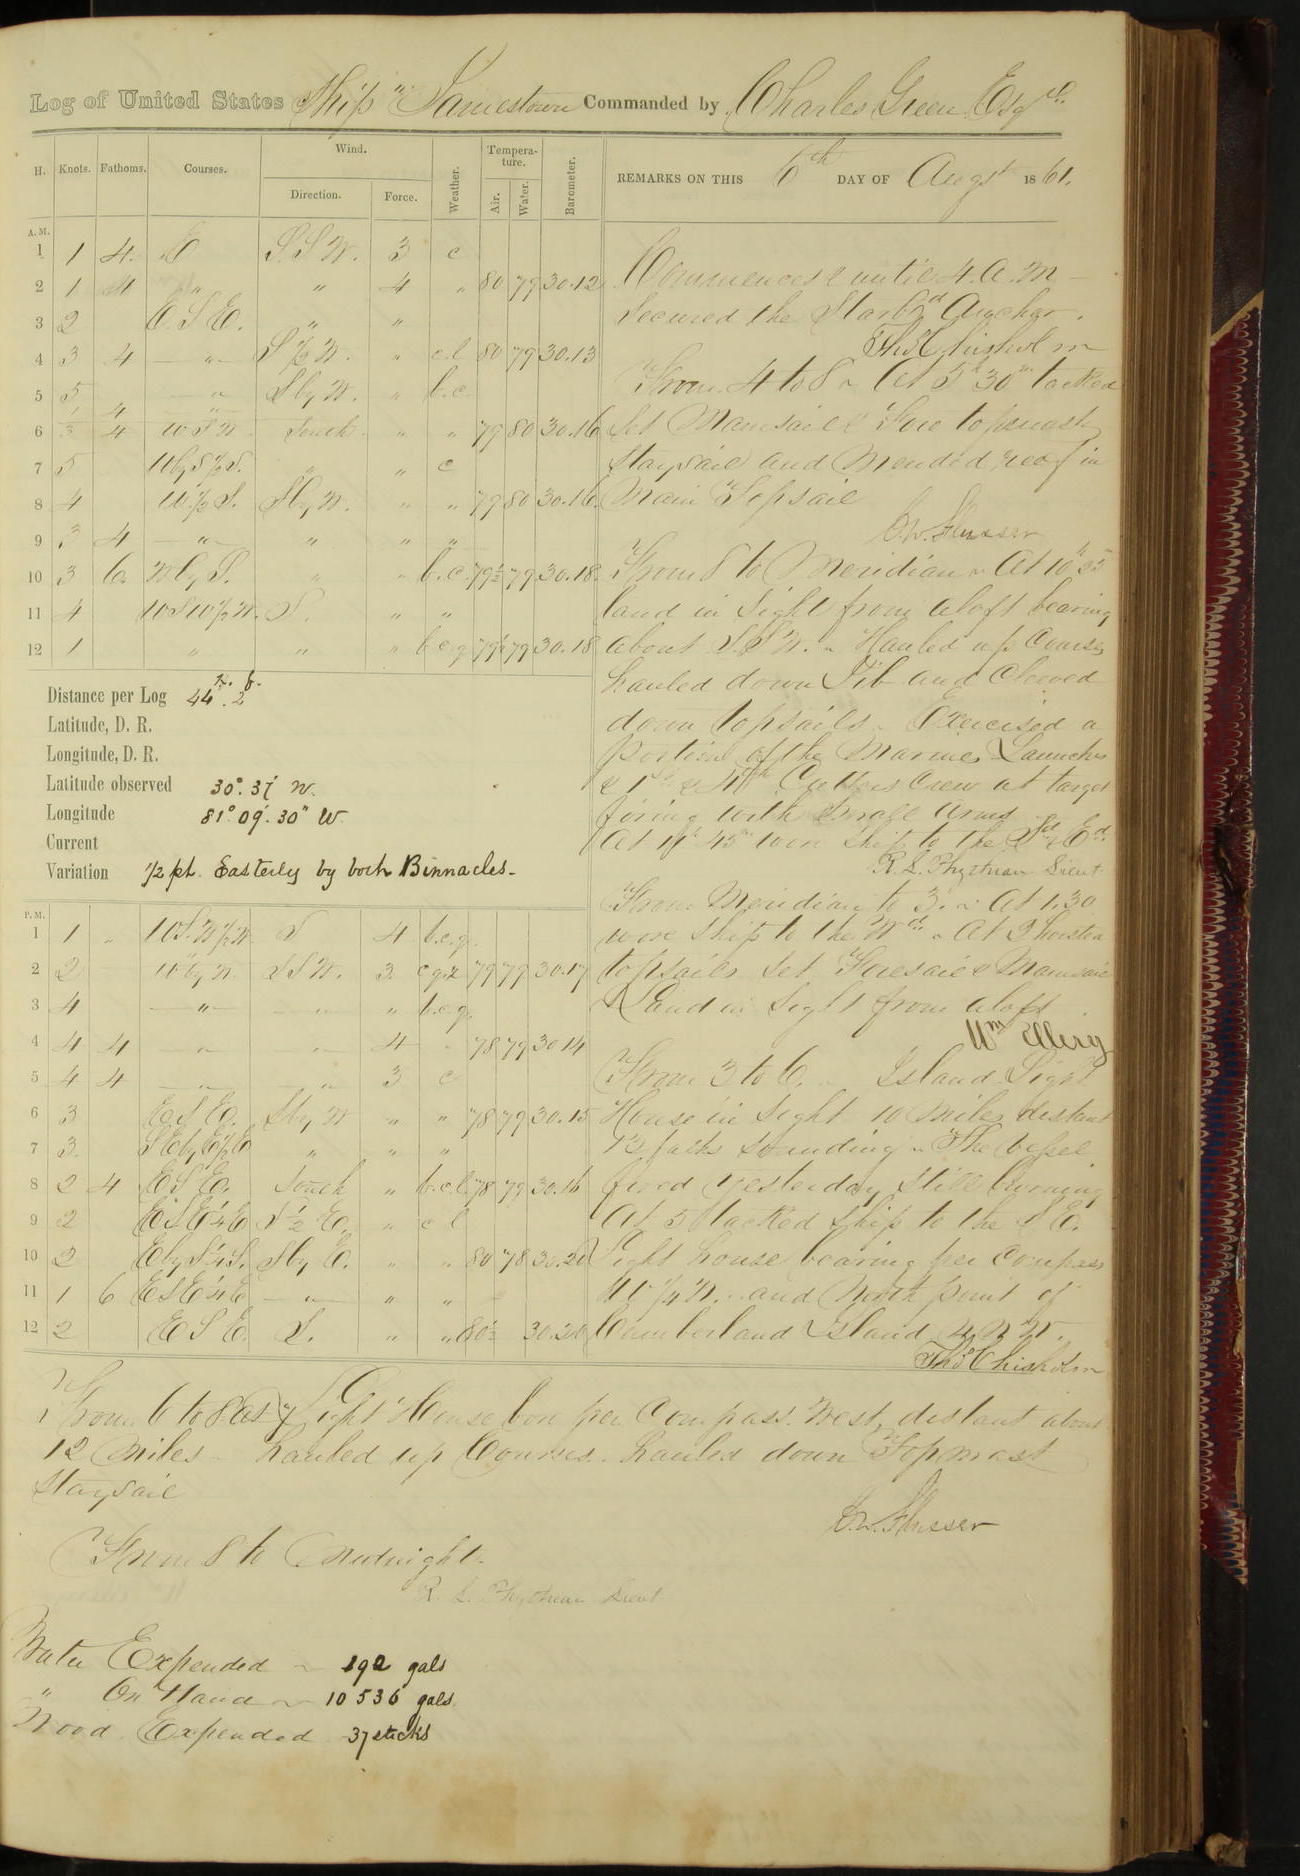 Log of United States Ship "Jamestown Commanded by Charles Green Esqre
H. Knots. Fathoms. Courses. Wind. Direction. Force. Weather. Tempera-ture. Air. Water. Barometer. REMARKS ON THIS 6th DAY OF Augst 1861.
A.M.
1 1 4 E S.S.W. 3 c
2 1 4 " " 4 " 80 79 30.12
3 2 E.S.E. " "
4 3 4 " S ½ W. " c.l 80 79 30.13
5 5 " S by W. " b.c.
6 4 W.S.W. South " " 79 80 30.16
7 5 W by S ½ S. " " c
8 4 W. ½ S. S by W. " " 79 80 30.16
9 3 4 " " " "
10 3 6 W by S. " " b.c. 79½ 79 30.18
11 4 WSW ½ W. S. " "
12 1 " " " b c q 79½ 79 30.18
Commences & until 4. A.M
Secured the Starbd Anchor.
Thos Chisholm
From 4 to 8 At 5h 30m tacked
Set Mainsail & Fore topmast
Staysail and Mended reef in
Main Topsail
C.W. Flusser
From 8 to Meridian At 10h 35
land in sight from aloft bearing
about S.S.W. Hauled up Courses
hauled down Jib and Clewed
down topsails. Exercised a
portion of the Marines Launches
& 1st & 4th Cutters Crew at target
firing with small arms
At 11h 45m wore ship to the Sd & Ed
R. L. Phythian Lieut
Distance per Log 44 K. 2 f.
Latitude, D. R.
Longitude, D. R.
Latitude observed 30° 37' N.
Longitude 81° 09' 30" W
Current
Variation ½ pt. Easterly by both Binnacles.
P.M.
1 1 " WS.W ½ W. S 4 b.c.q.
2 2 W by W. SSW. 3 c q r 79 79 30.17
3 4 " " " b.c.q.
4 4 4 " " 4 " 78 79 30 14
5 4 4 " " 3 c
6 3 E S E. S by W " " 78 79 30.15
7 3 SE by E ½ E " " "
8 2 4 E S E. South " b.c.l 78 79 30.16
9 2 E S E ¼ E S ½ E. " c l
10 2 E by S ¼ S. S by E. " " 80 78 30.20
11 1 6 E S E ¼ E " " "
12 2 E S E S. " " 80½ 30.20
From Meridian to 3. At 1.30
wore ship to the Wd. At 3 hoisted
topsails set Foresail & Mainsail
Land in sight from aloft
Wm Ellery
From 3 to 6. Island Light
House in sight 10 miles distant
13 faths sounding The vessel
fired yesterday still burning
At 5 tacked ship to the S E.
Light house bearing per compass
W ¼ N. and North point of
Cumberland Island N.W.
Thos Chisholm
From 6 to 8 At 7 Light House bore per Compass West, distant about
12 Miles hauled up Courses. hauled down Topmast
Staysail
C.W. Flusser
From 8 to Midnight.
R. L. Phythian Lieut
Water Expended 192 gals
" On Hand 10536 gals.
Wood Expended 37 sticks